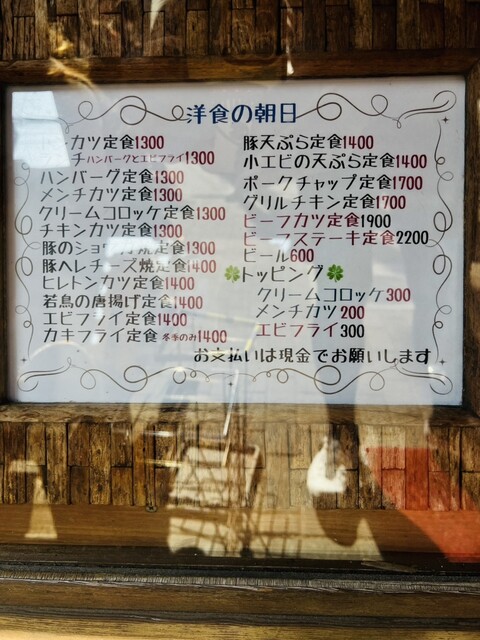 洋食の朝日
カツ定食1300
ランチハンバーグとエビフライ1300
ハンバーグ定食1300
メンチカツ定食1300
クリームコロッケ定食1300
チキンカツ定食1300
豚のショウガ焼定食1300
豚ヘレチーズ焼定食1400
ヒレトンカツ定食1400
若鳥の唐揚げ定食1400
エビフライ定食1400
カキフライ定食 冬季のみ1400
豚天ぷら定食1400
小エビの天ぷら定食1400
ポークチャップ定食1700
グリルチキン定食1700
ビーフカツ定食1900
ビーフステーキ定食2200
ビール600
🍀トッピング🍀
クリームコロッケ300
メンチカツ200
エビフライ300
お支払いは現金でお願いします